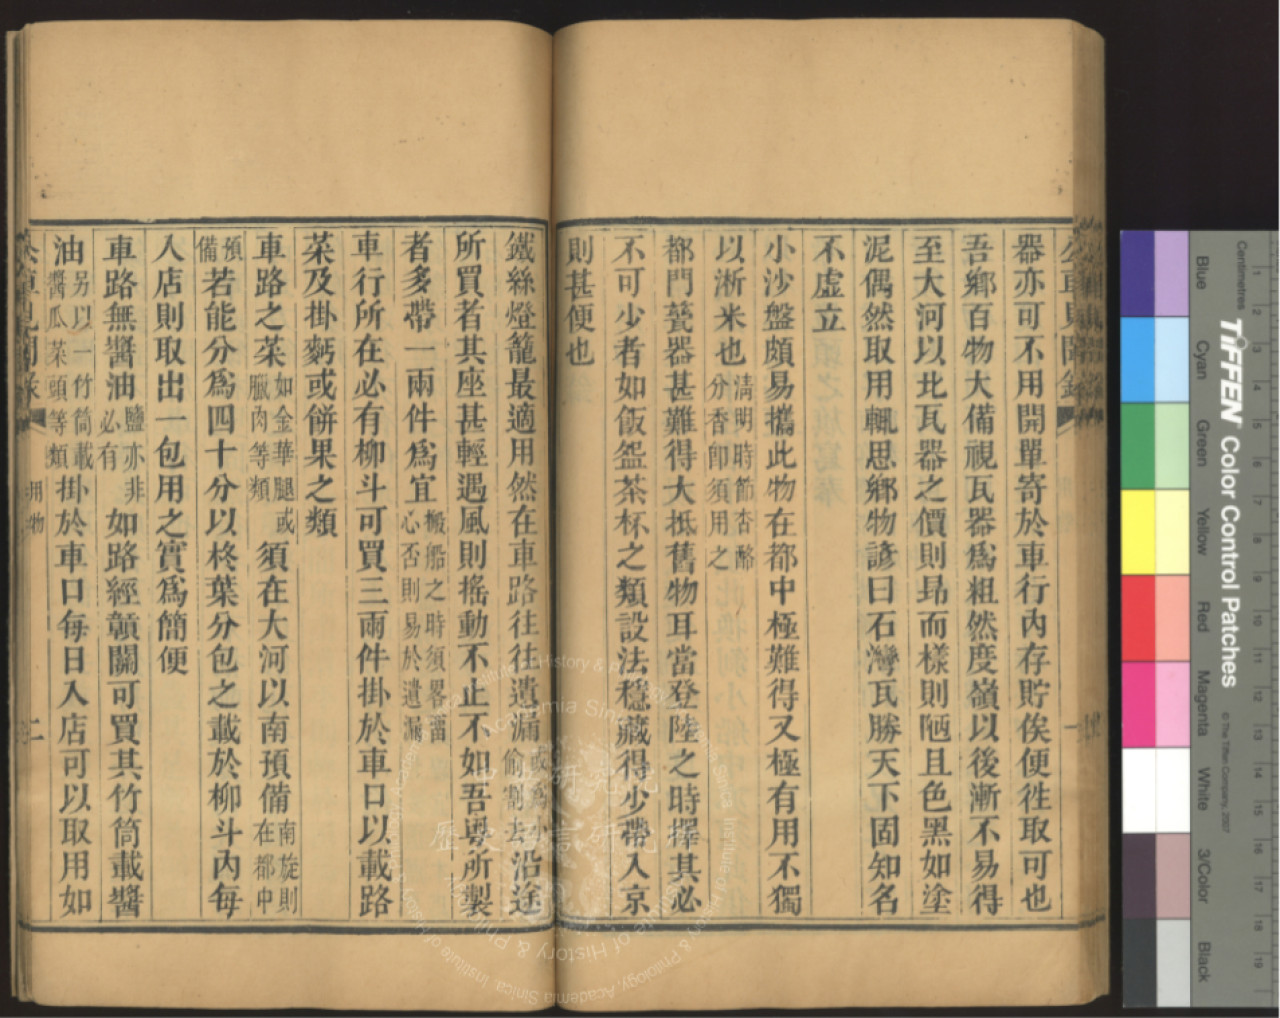 公車見聞錄
器亦可不用開單寄於車行內存貯俟便徃取可也
吾鄉百物大備視瓦器爲粗然度嶺以後漸不易得
至大河以北瓦器之價則昻而樣則陋且色黑如塗
泥偶然取用輒思鄉物諺曰石灣瓦勝天下固知名
不虛立
小沙盤頗易攜此物在都中極難得又極有用不獨
以淅米也清明時節杏酪分香卽須用之
都門甆器甚難得大抵舊物耳當登陸之時擇其必
不可少者如飯盌茶杯之類設法穩藏得少帶入京
則甚便也
鐵絲燈籠最適用然在車路往往遺漏或爲小偷割去沿途
所買者其座甚輕遇風則搖動不止不如吾粵所製
者多帶一兩件爲宜搬船之時須畧畱心否則易於遺漏
車行所在必有柳斗可買三兩件掛於車口以載路
菜及掛麪或餅果之類
車路之菜如金華腿或臘肉等類須在大河以南預備南旋則在都中
預備若能分爲四十分以柊葉分包之載於柳斗內每
入店則取出一包用之實爲簡便
車路無醬油鹽亦非必有如路經贛關可買其竹筒載醬
油另以一竹筒載醬瓜菜頭等類掛於車口每日入店可以取用如
公車見聞錄
用物
二
Centimetres
TIFFEN Color Control Patches
© The Tiffen Company, 2007
Blue
Cyan
Green
Yellow
Red
Magenta
White
3/Color
Black
1 2 3 4 5 6 7 8 9 10 11 12 13 14 15 16 17 18 19
歷史語言研究所
Institute of History & Philology, Academia Sinica